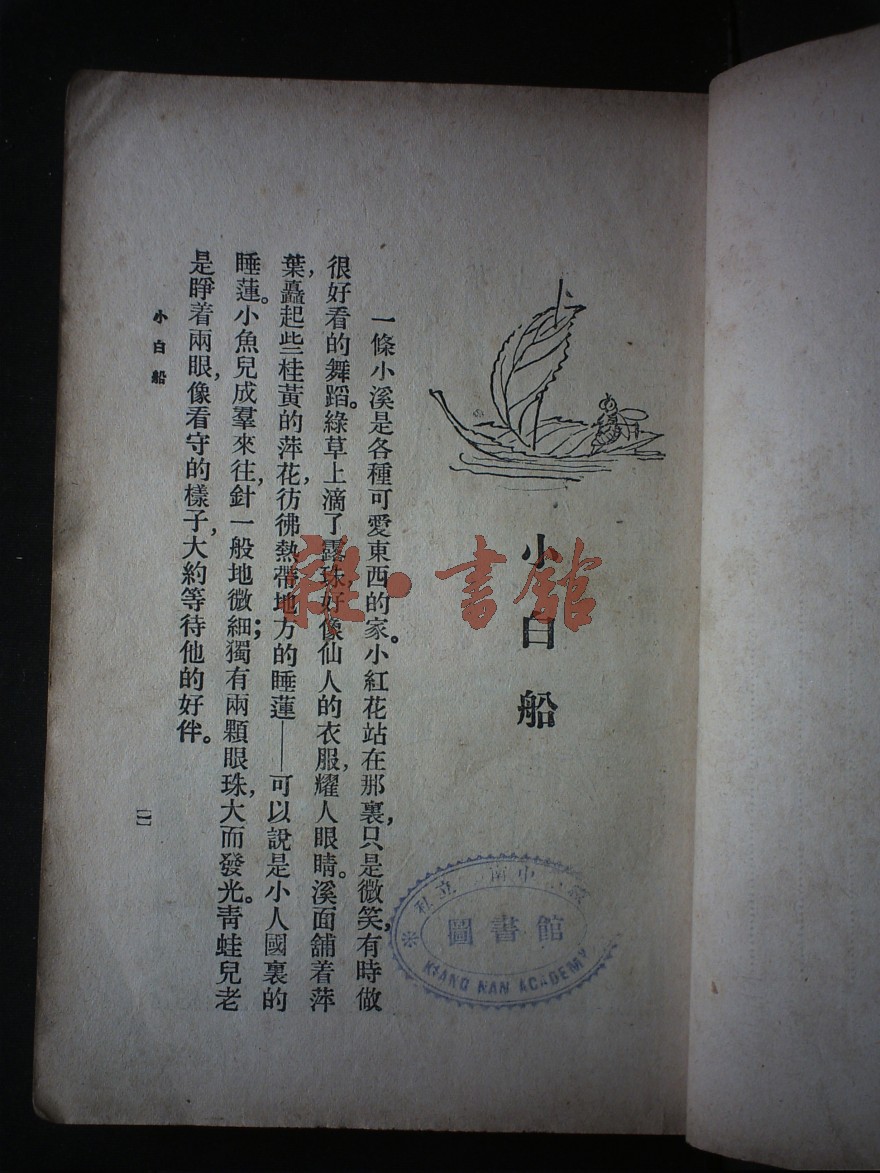 小白船
一條小溪是各種可愛東西的家。小紅花站在那裏，只是微笑，有時做
很好看的舞蹈。綠草上滴了露珠，好像仙人的衣服，耀人眼睛。溪面舖着萍
葉，矗起些桂黃的萍花，彷彿熱帶地方的睡蓮——可以說是小人國裏的
睡蓮。小魚兒成羣來往，針一般地微細；獨有兩顆眼珠，大而發光。青蛙兒老
是睜着兩眼，像看守的樣子，大約等待他的好伴。
小白船
一
雜·書館
私立 南中
圖書館
KIANG NAN ACADEMY